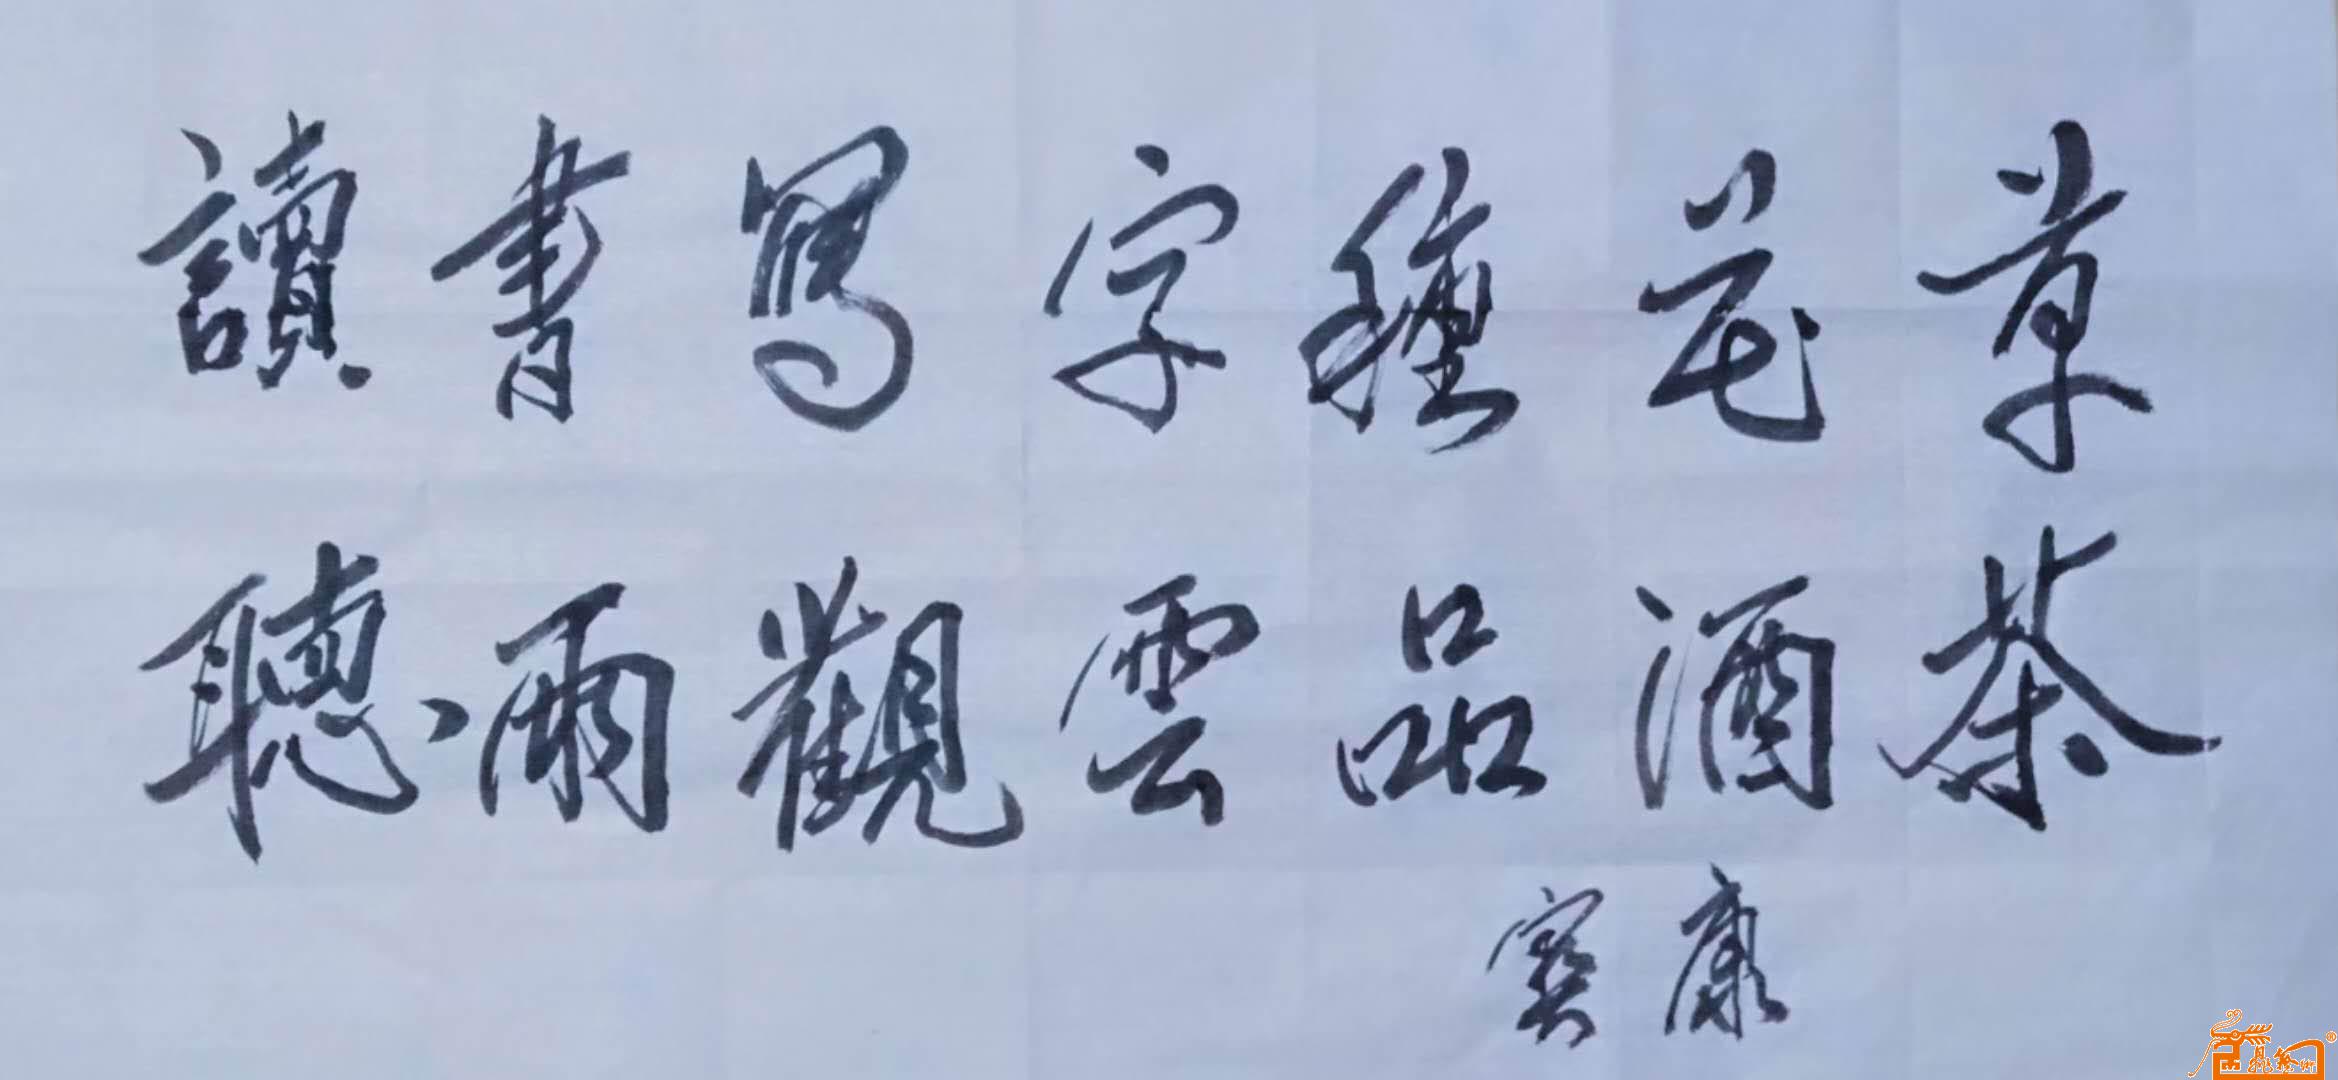 讀書寫字種花草
聽雨觀雲品酒茶
寶康